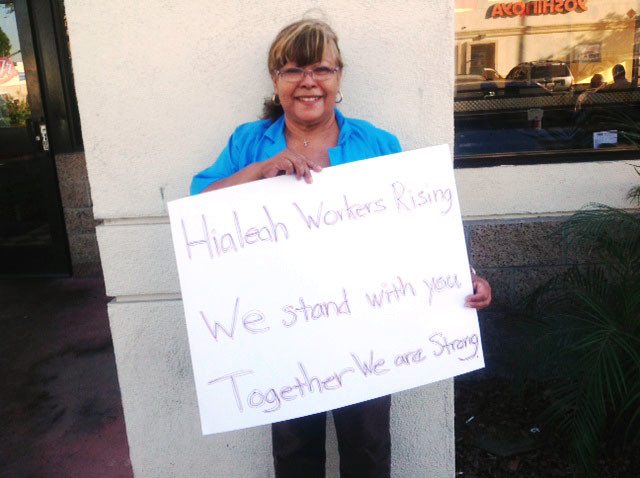 YOSHINOYA
Hialeah Workers Rising
We stand with you
Together We are Strong